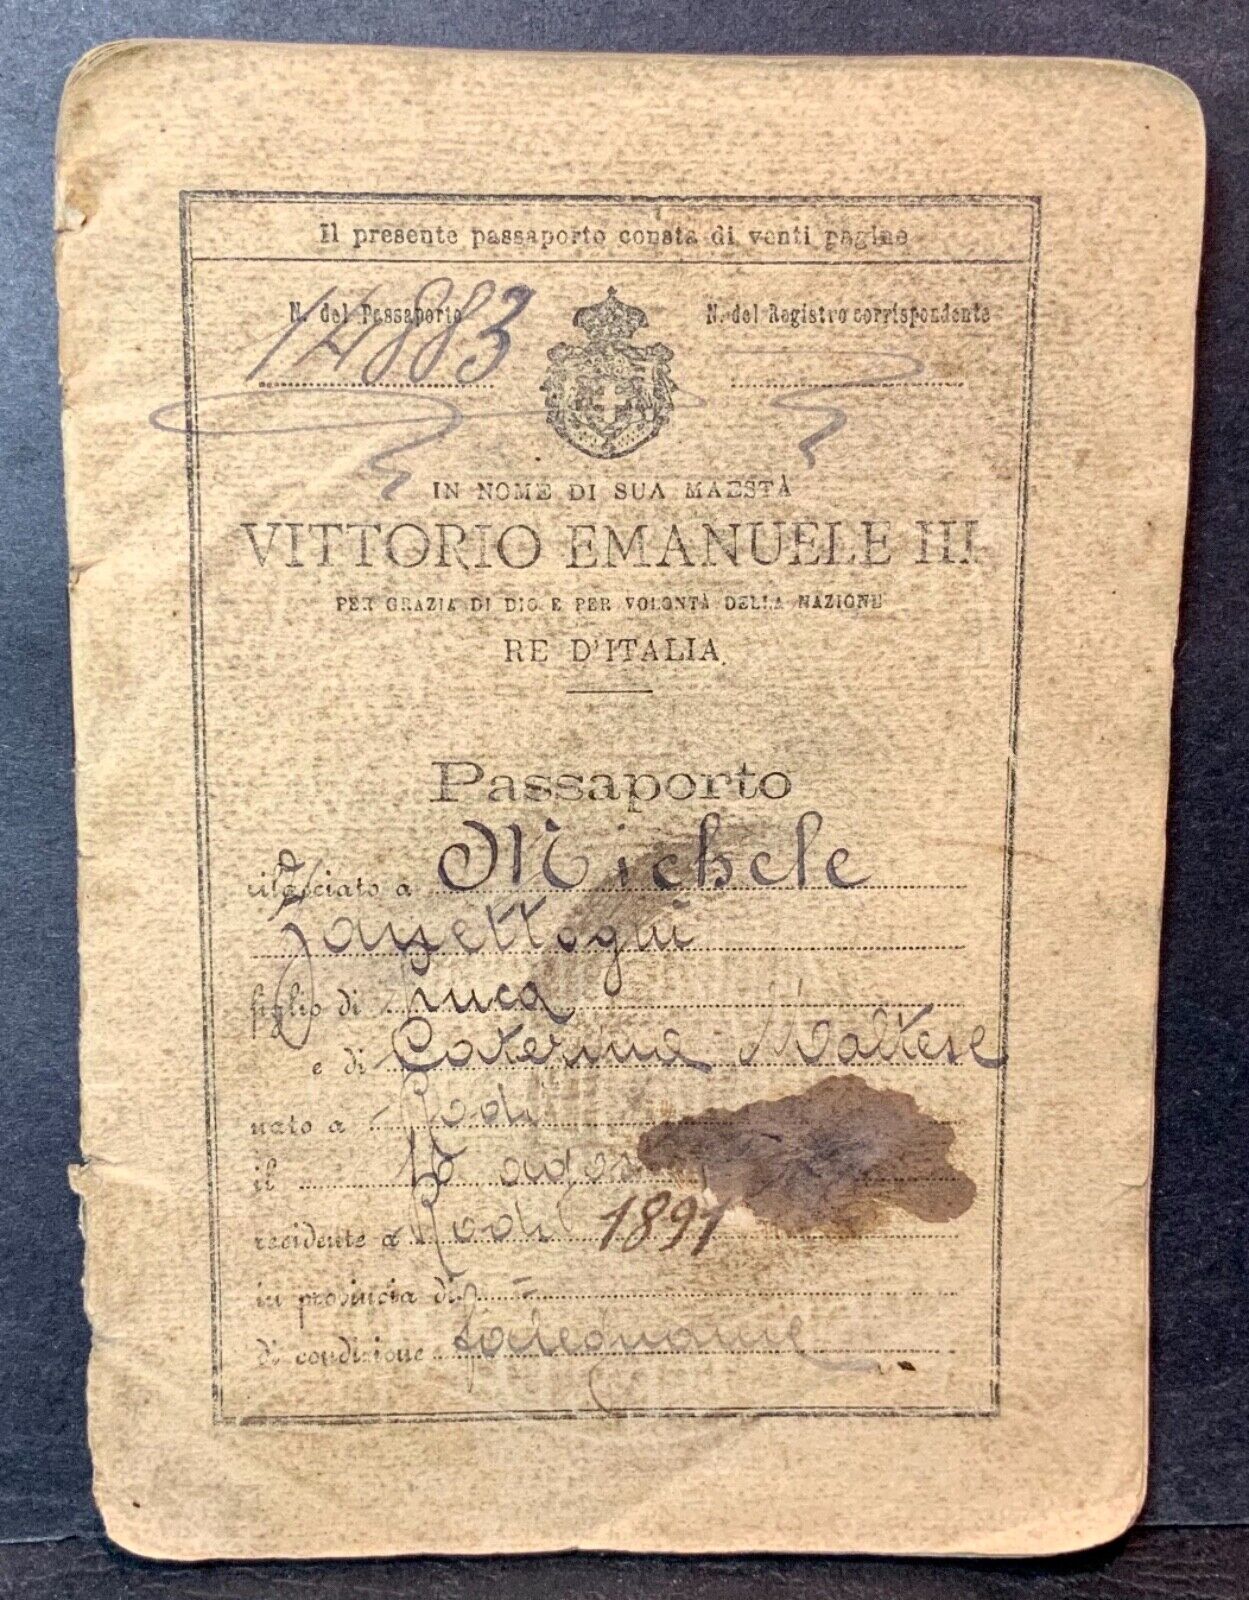 Il presente passaporto consta di venti pagine
N. del Passaporto
N. del Registro corrispondente
14883
IN NOME DI SUA MAESTÀ
VITTORIO EMANUELE III
PER GRAZIA DI DIO E PER VOLONTÀ DELLA NAZIONE
RE D'ITALIA
Passaporto
rilasciato a Michele
figlio di Luca
e di Caterina Maltese
nato a Rodi
il
residente a Rodi 1891
in provincia di
di condizione falegname